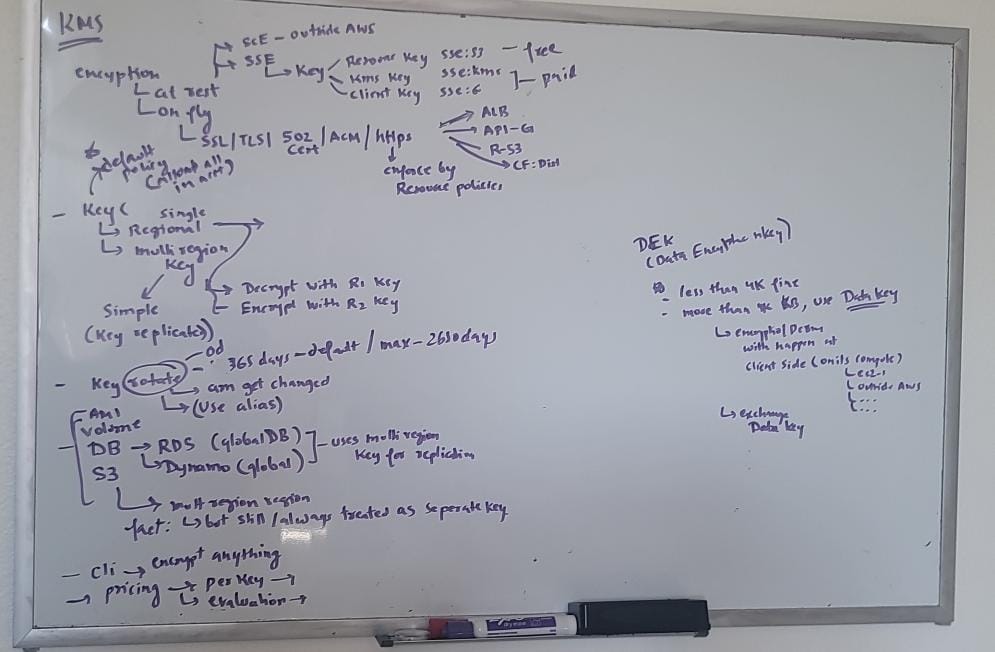 KMS
encyption
at rest
on fly
SCE - outside AWS
SSE
Key
Resource Key sse:s3 - free
Kms Key sse:kms
Client Key sse:c
paid
SSL/TLS/ 502 Cert /ACM/ https
ALB
API-G
R-S3
CF:Dist
enforce by
Resource policies
default
policy
- Key
single
Regional
multi region
Key
Decrypt with R1 Key
Encrypt with R2 Key
Simple
(Key replicate)
od
365 days - default / max - 2650 days
- Key rotate
arn get changed
(use alias)
AMI
Volume
- DB → RDS (globalDB)
Dynamo (global)
S3
uses multi region
Key for replication
mult region region
fact: but still/always treated as seperate key
- cli → encrypt anything
→ pricing → per Key →
evaluation →
DEK
(Data Encyption key)
- less than 4K fine
- more than 4K KB, use Data Key
with happen at
client side (onils compute)
ec2-1
outside AWS
exchange
Data key